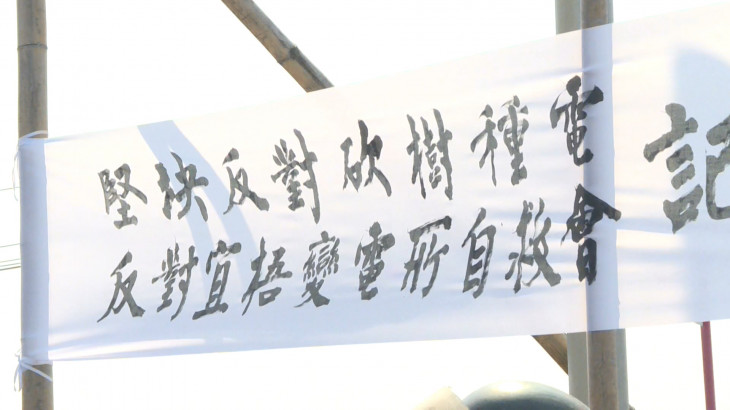 堅決反對砍樹種電
反對宜梧變電所自救會
記